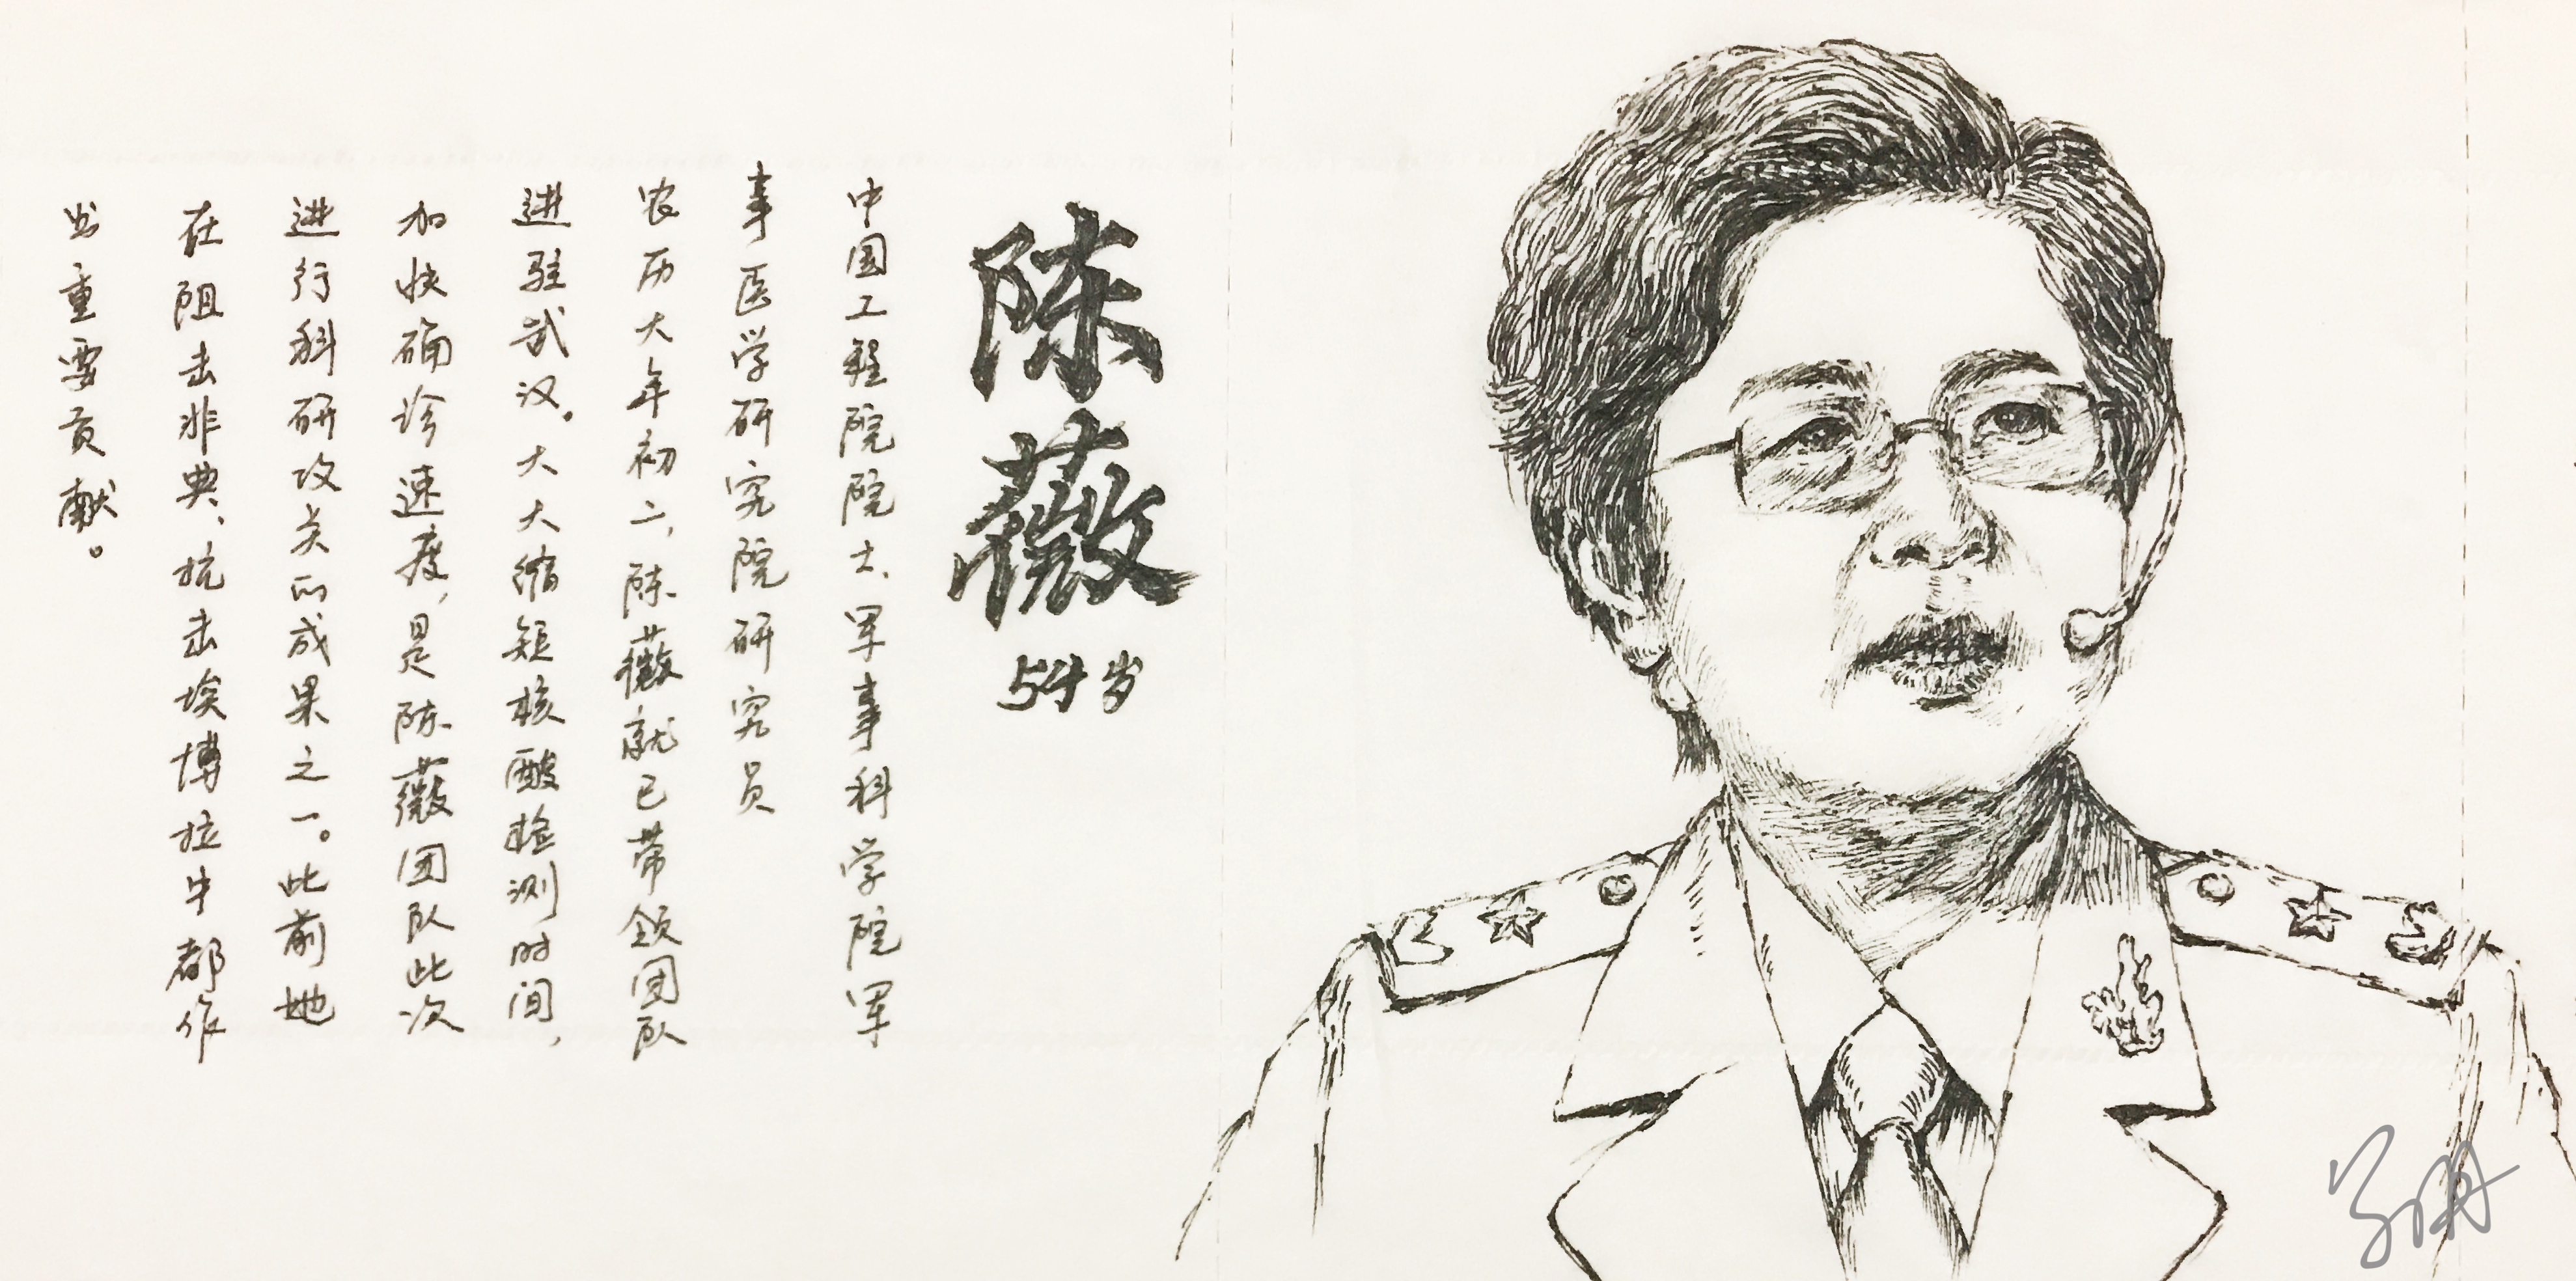 陈薇
54岁
中国工程院院士、军事科学院军
事医学研究院研究员
农历大年初二，陈薇就已带领团队
进驻武汉。大大缩短核酸检测时间，
加快确诊速度，是陈薇团队此次
进行科研攻关的成果之一。此前她
在阻击非典、抗击埃博拉中都作
出重要贡献。